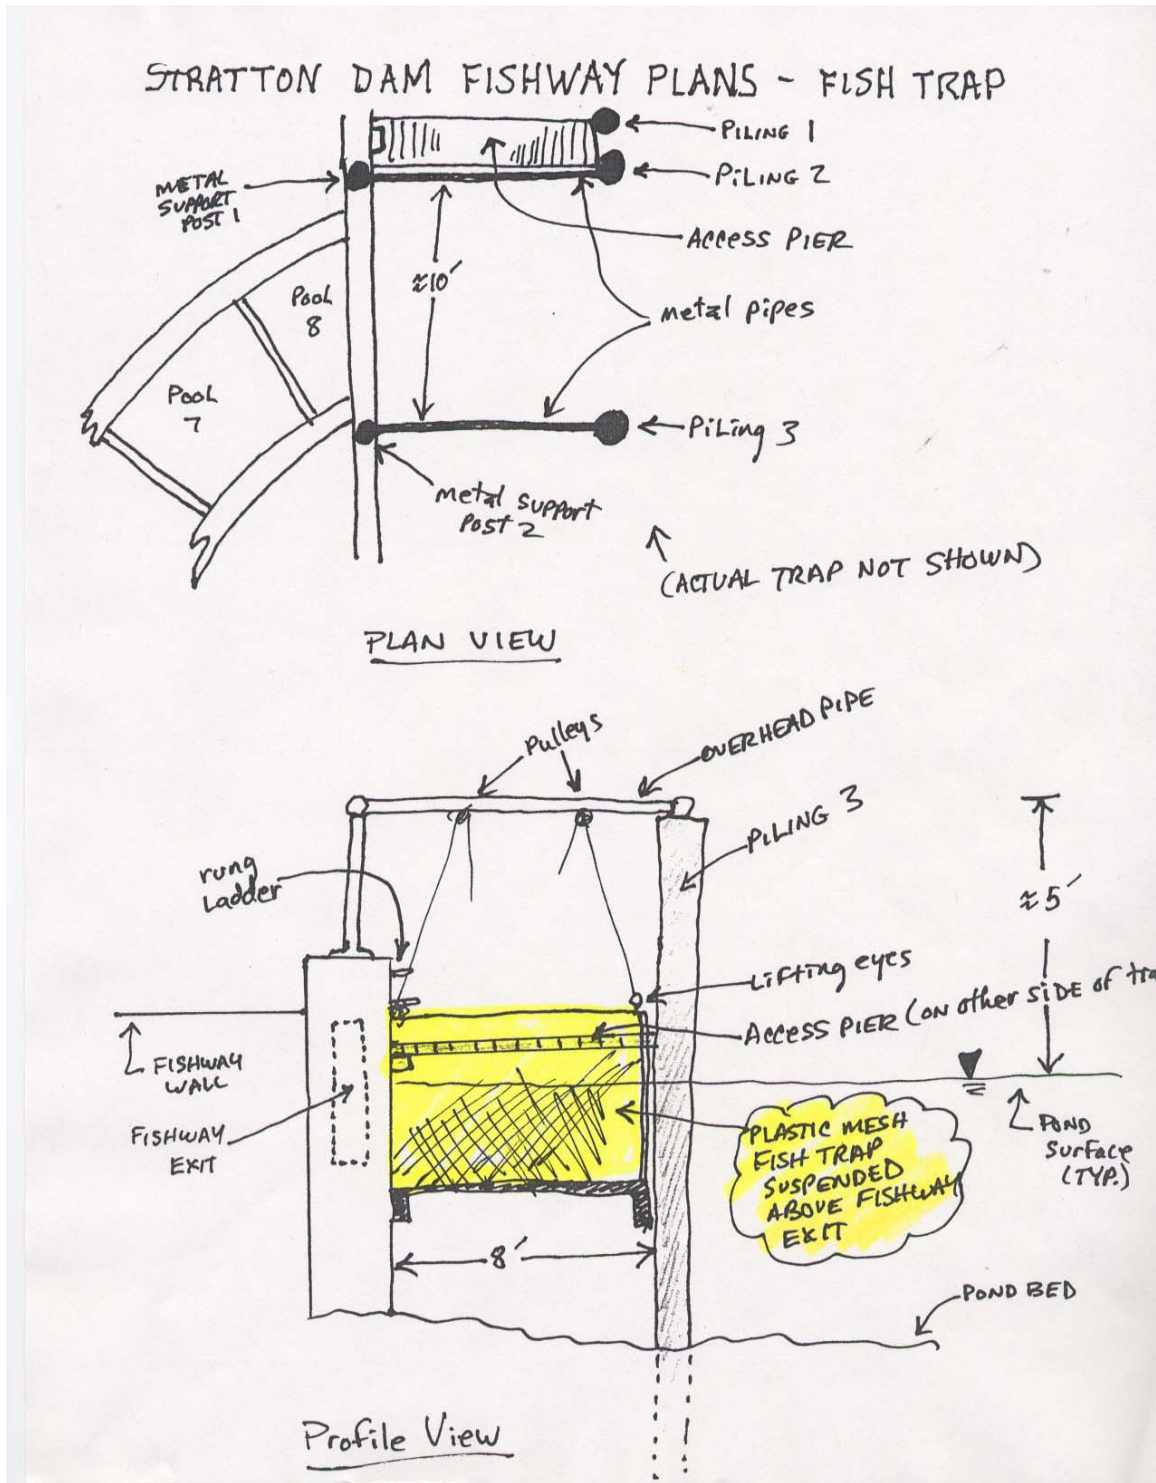 STRATTON DAM FISHWAY PLANS - FISH TRAP
PILING 1
PILING 2
METAL
SUPPORT
POST 1
ACCESS PIER
≈10'
Pool
8
metal pipes
Pool
7
PiLing 3
metal support
Post 2
(ACTUAL TRAP NOT SHOWN)
PLAN VIEW
Pulleys
OVERHEAD PIPE
PILING 3
rung
Ladder
≈5'
Lifting eyes
Access PIER (on other SIDE of tra
FISHWAY
WALL
FISHWAY
EXIT
PLASTIC MESH
FISH TRAP
SUSPENDED
ABOVE FISHWAY
EXIT
POND
Surface
(TYP.)
8'
POND BED
Profile View